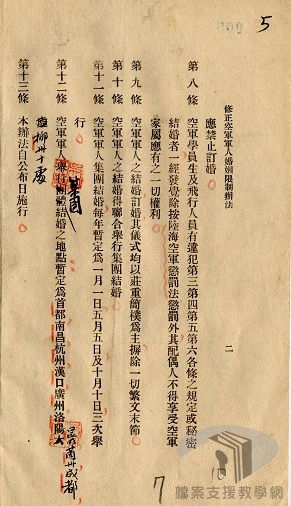 5
修正空軍軍人婚姻限制辦法
二
應禁止訂婚
第八條 空軍學員生及飛行人員有違犯第三第四第五第六各條之規定或秘密
結婚者一經發覺除按陸海空軍懲罰法懲罰外其配偶人不得享受空軍
家屬應有之一切權利
第九條 空軍軍人之結婚訂婚其儀式均以莊重簡樸爲主摒除一切繁文末節
第十條 空軍軍人之結婚得聯合舉行集團結婚
第十一條 空軍軍人集團結婚每年暫定爲一月一日五月五日及十月十日三次舉
行
第十二條 空軍軍人舉行團體結婚之地點暫定爲首都南昌杭州漢口廣州洛陽
集團
成都
柳州十處
第十三條 本辦法自公布日施行
10
7
檔案支援教學網